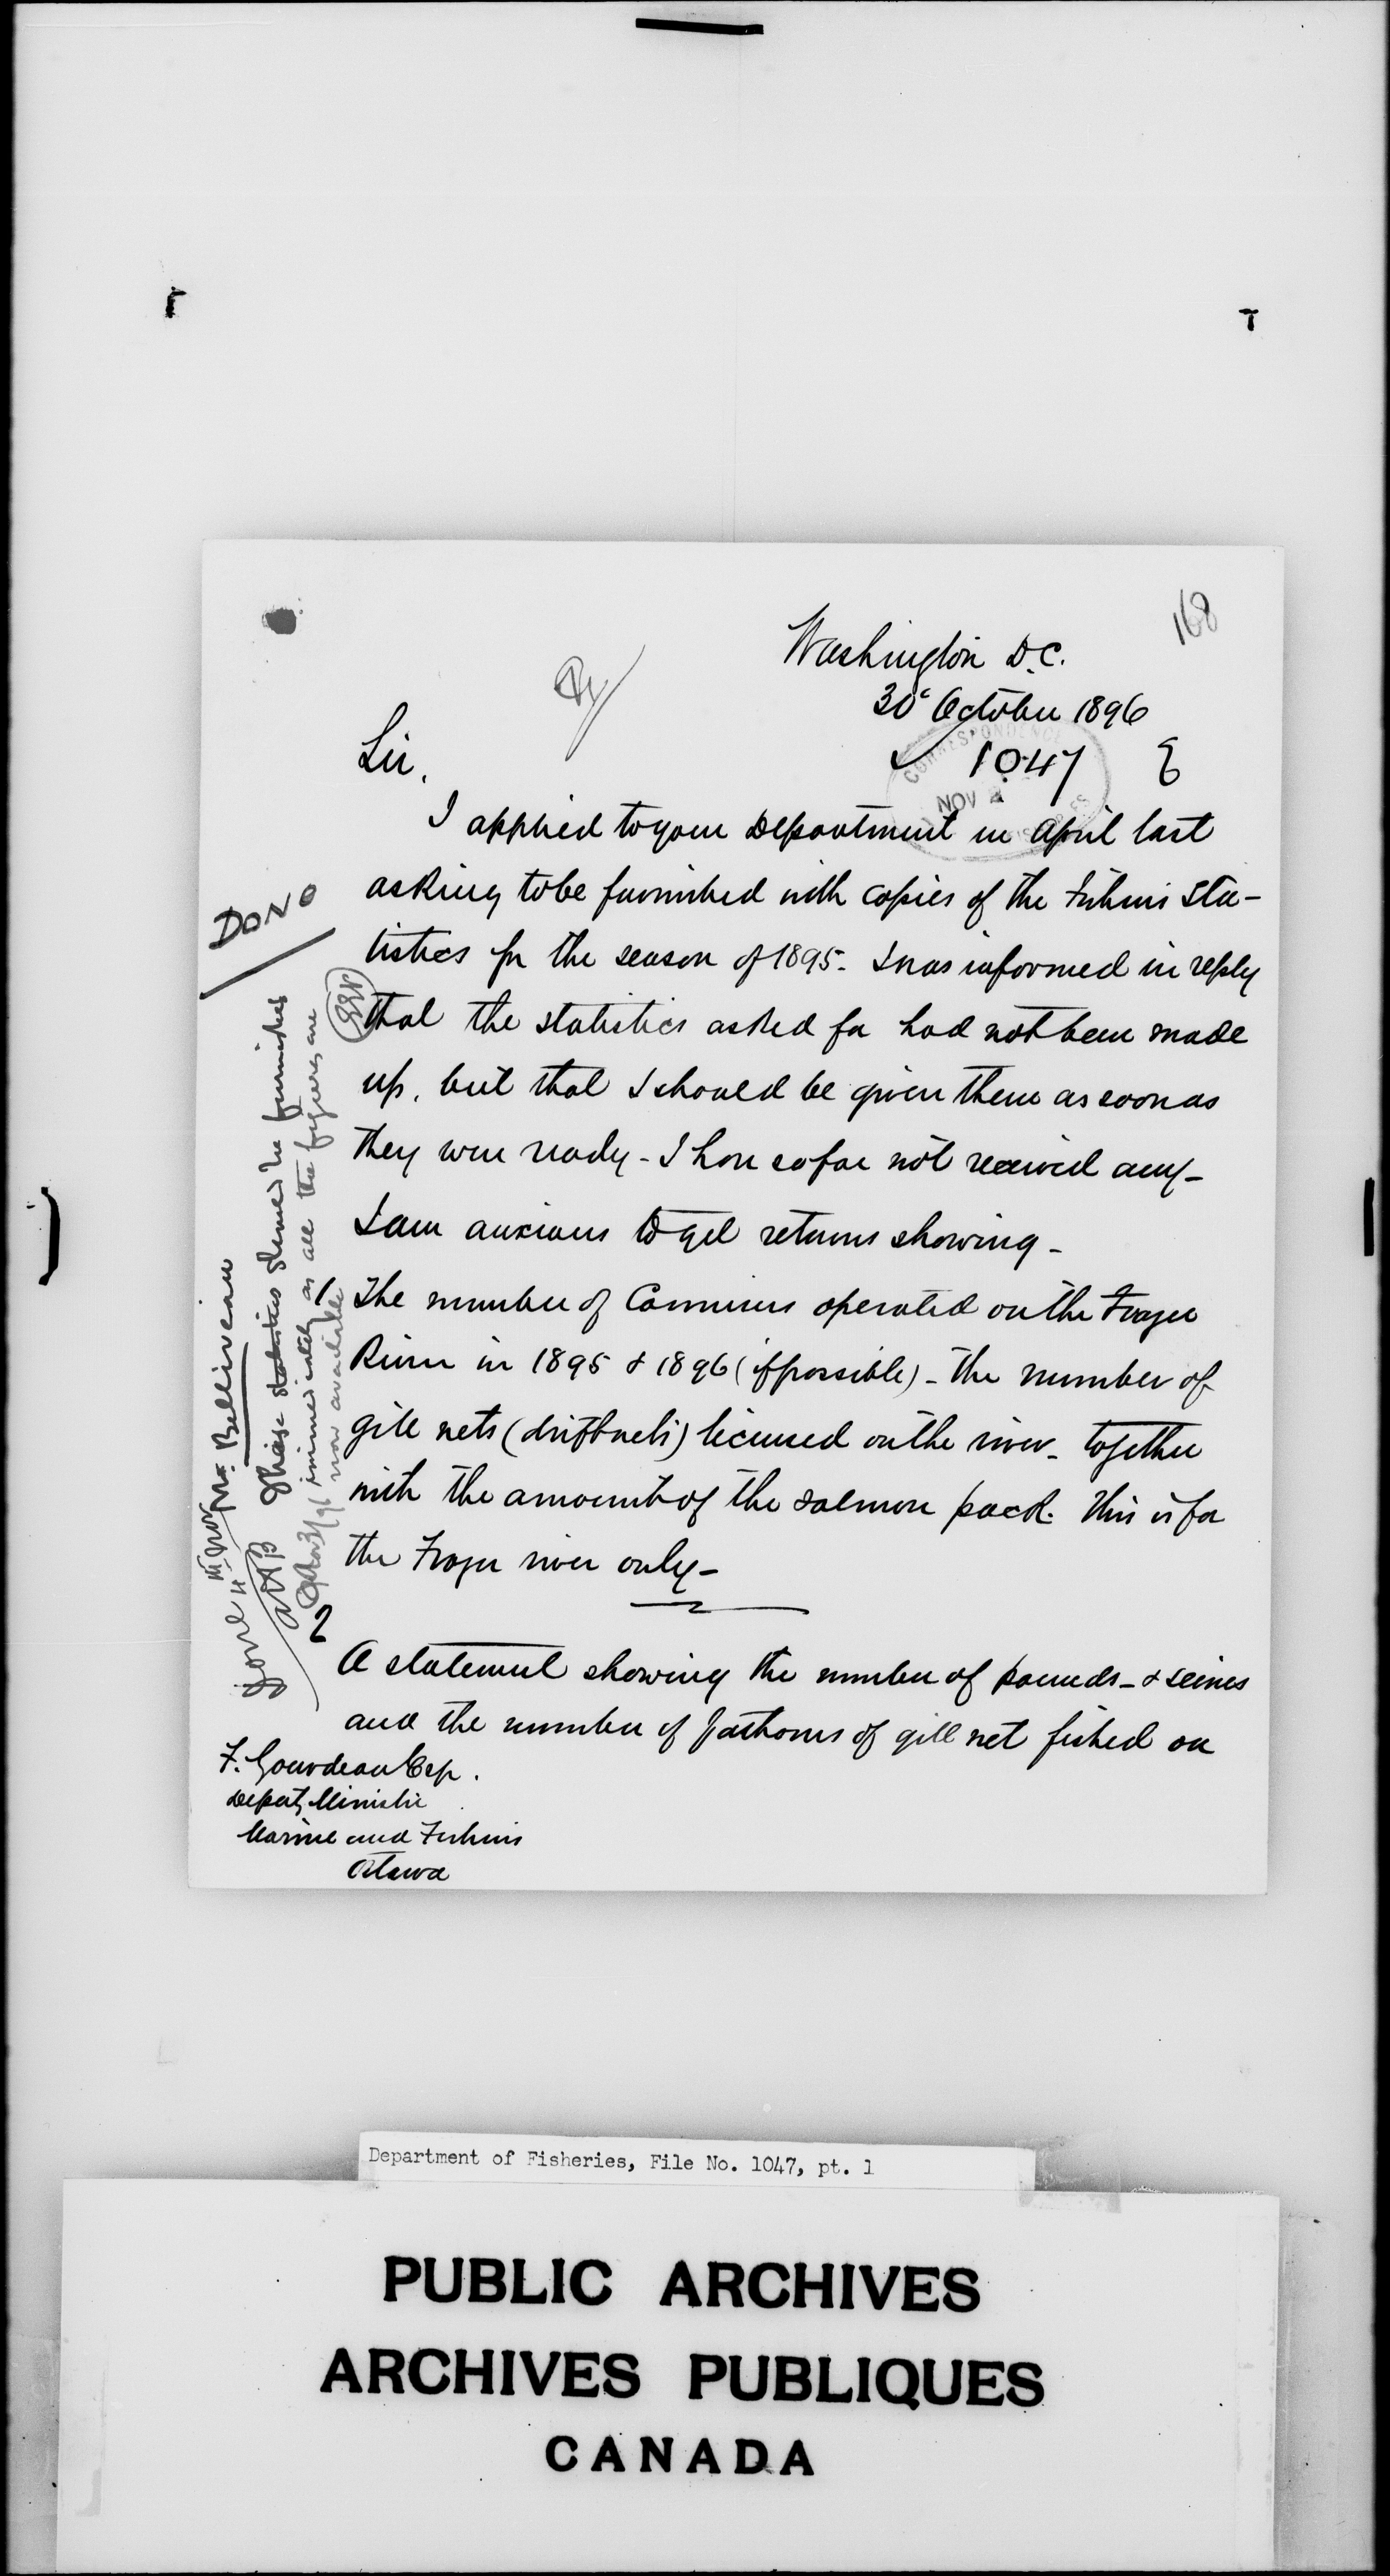 168
Washington D.C.
30 October 1896
Sir,
CORRESPONDENCE
1047
NOV
I applied to your Department in April last
asking to be furnished with copies of the Fisheries sta-
tistics for the season of 1895. I was informed in reply
that the statistics asked for had not been made
up, but that I should be given them as soon as
they were ready - I have so far not received any -
I am anxious to get returns showing -
1 The number of Canneries operated on the Frazer
River in 1895 & 1896 (if possible) - the number of
gill nets (driftnets) licensed on the river - together
with the amount of the salmon pack. This is for
the Frazer river only -
2
A statement showing the number of pounds - & seines
and the number of fathoms of gill net fished on
F. Gourdeau Esq.
Deputy Minister
Marine and Fisheries
Ottawa
DONE
Mr. Belliveau
Please statistics desired be furnished
immediately as all the figures are
now available
Done 4
Department of Fisheries, File No. 1047, pt. 1
PUBLIC ARCHIVES
ARCHIVES PUBLIQUES
CANADA